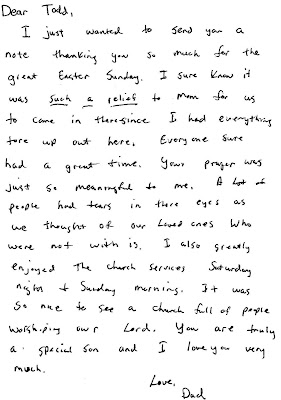 Dear Todd,
I just wanted to send you a
note thanking you so much for the
great Easter Sunday. I sure know it
was such a relief to mom for us
to come in there since I had everything
tore up out here. Everyone sure
had a great time. Your prayer was
just so meaningful to me. A lot of
people had tears in there eyes as
we thought of our Loved ones who
were not with is. I also greatly
enjoyed The church services Saturday
night & Sunday morning. It was
so nice to see a church full of people
worshiping our Lord. You are truly
a special son and I love you very
much.
Love,
Dad